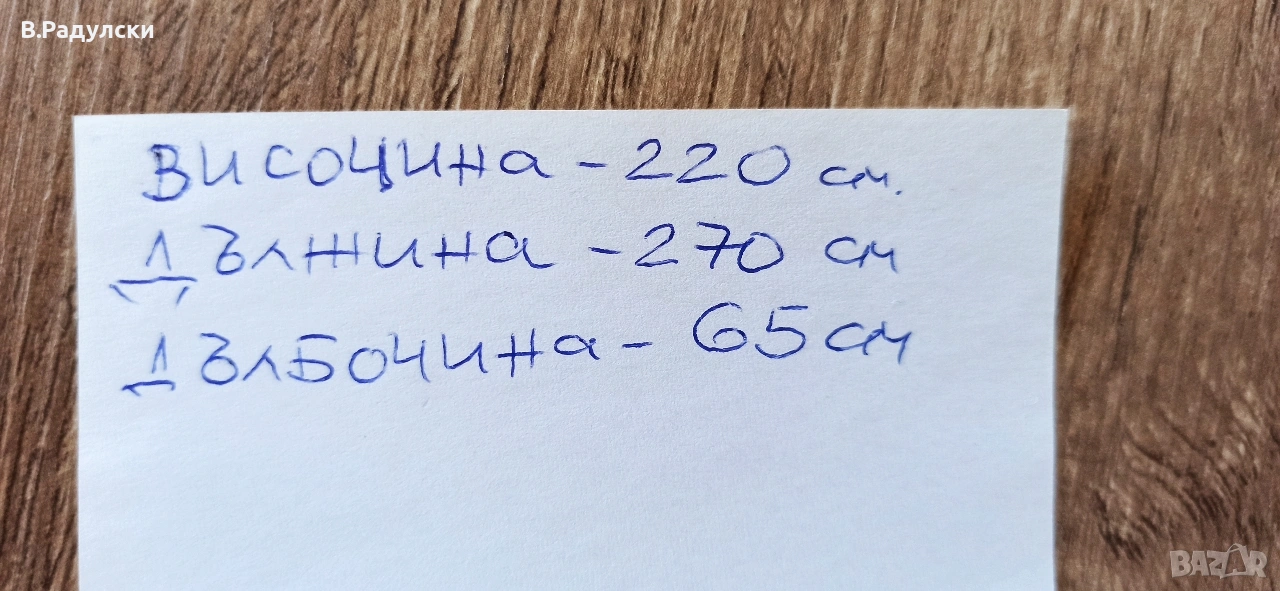 В.Радулски
ВИСОЧИНА - 220 см.
ДЪЛЖИНА - 270 см
ДЪЛБОЧИНА - 65 см
BAZAR